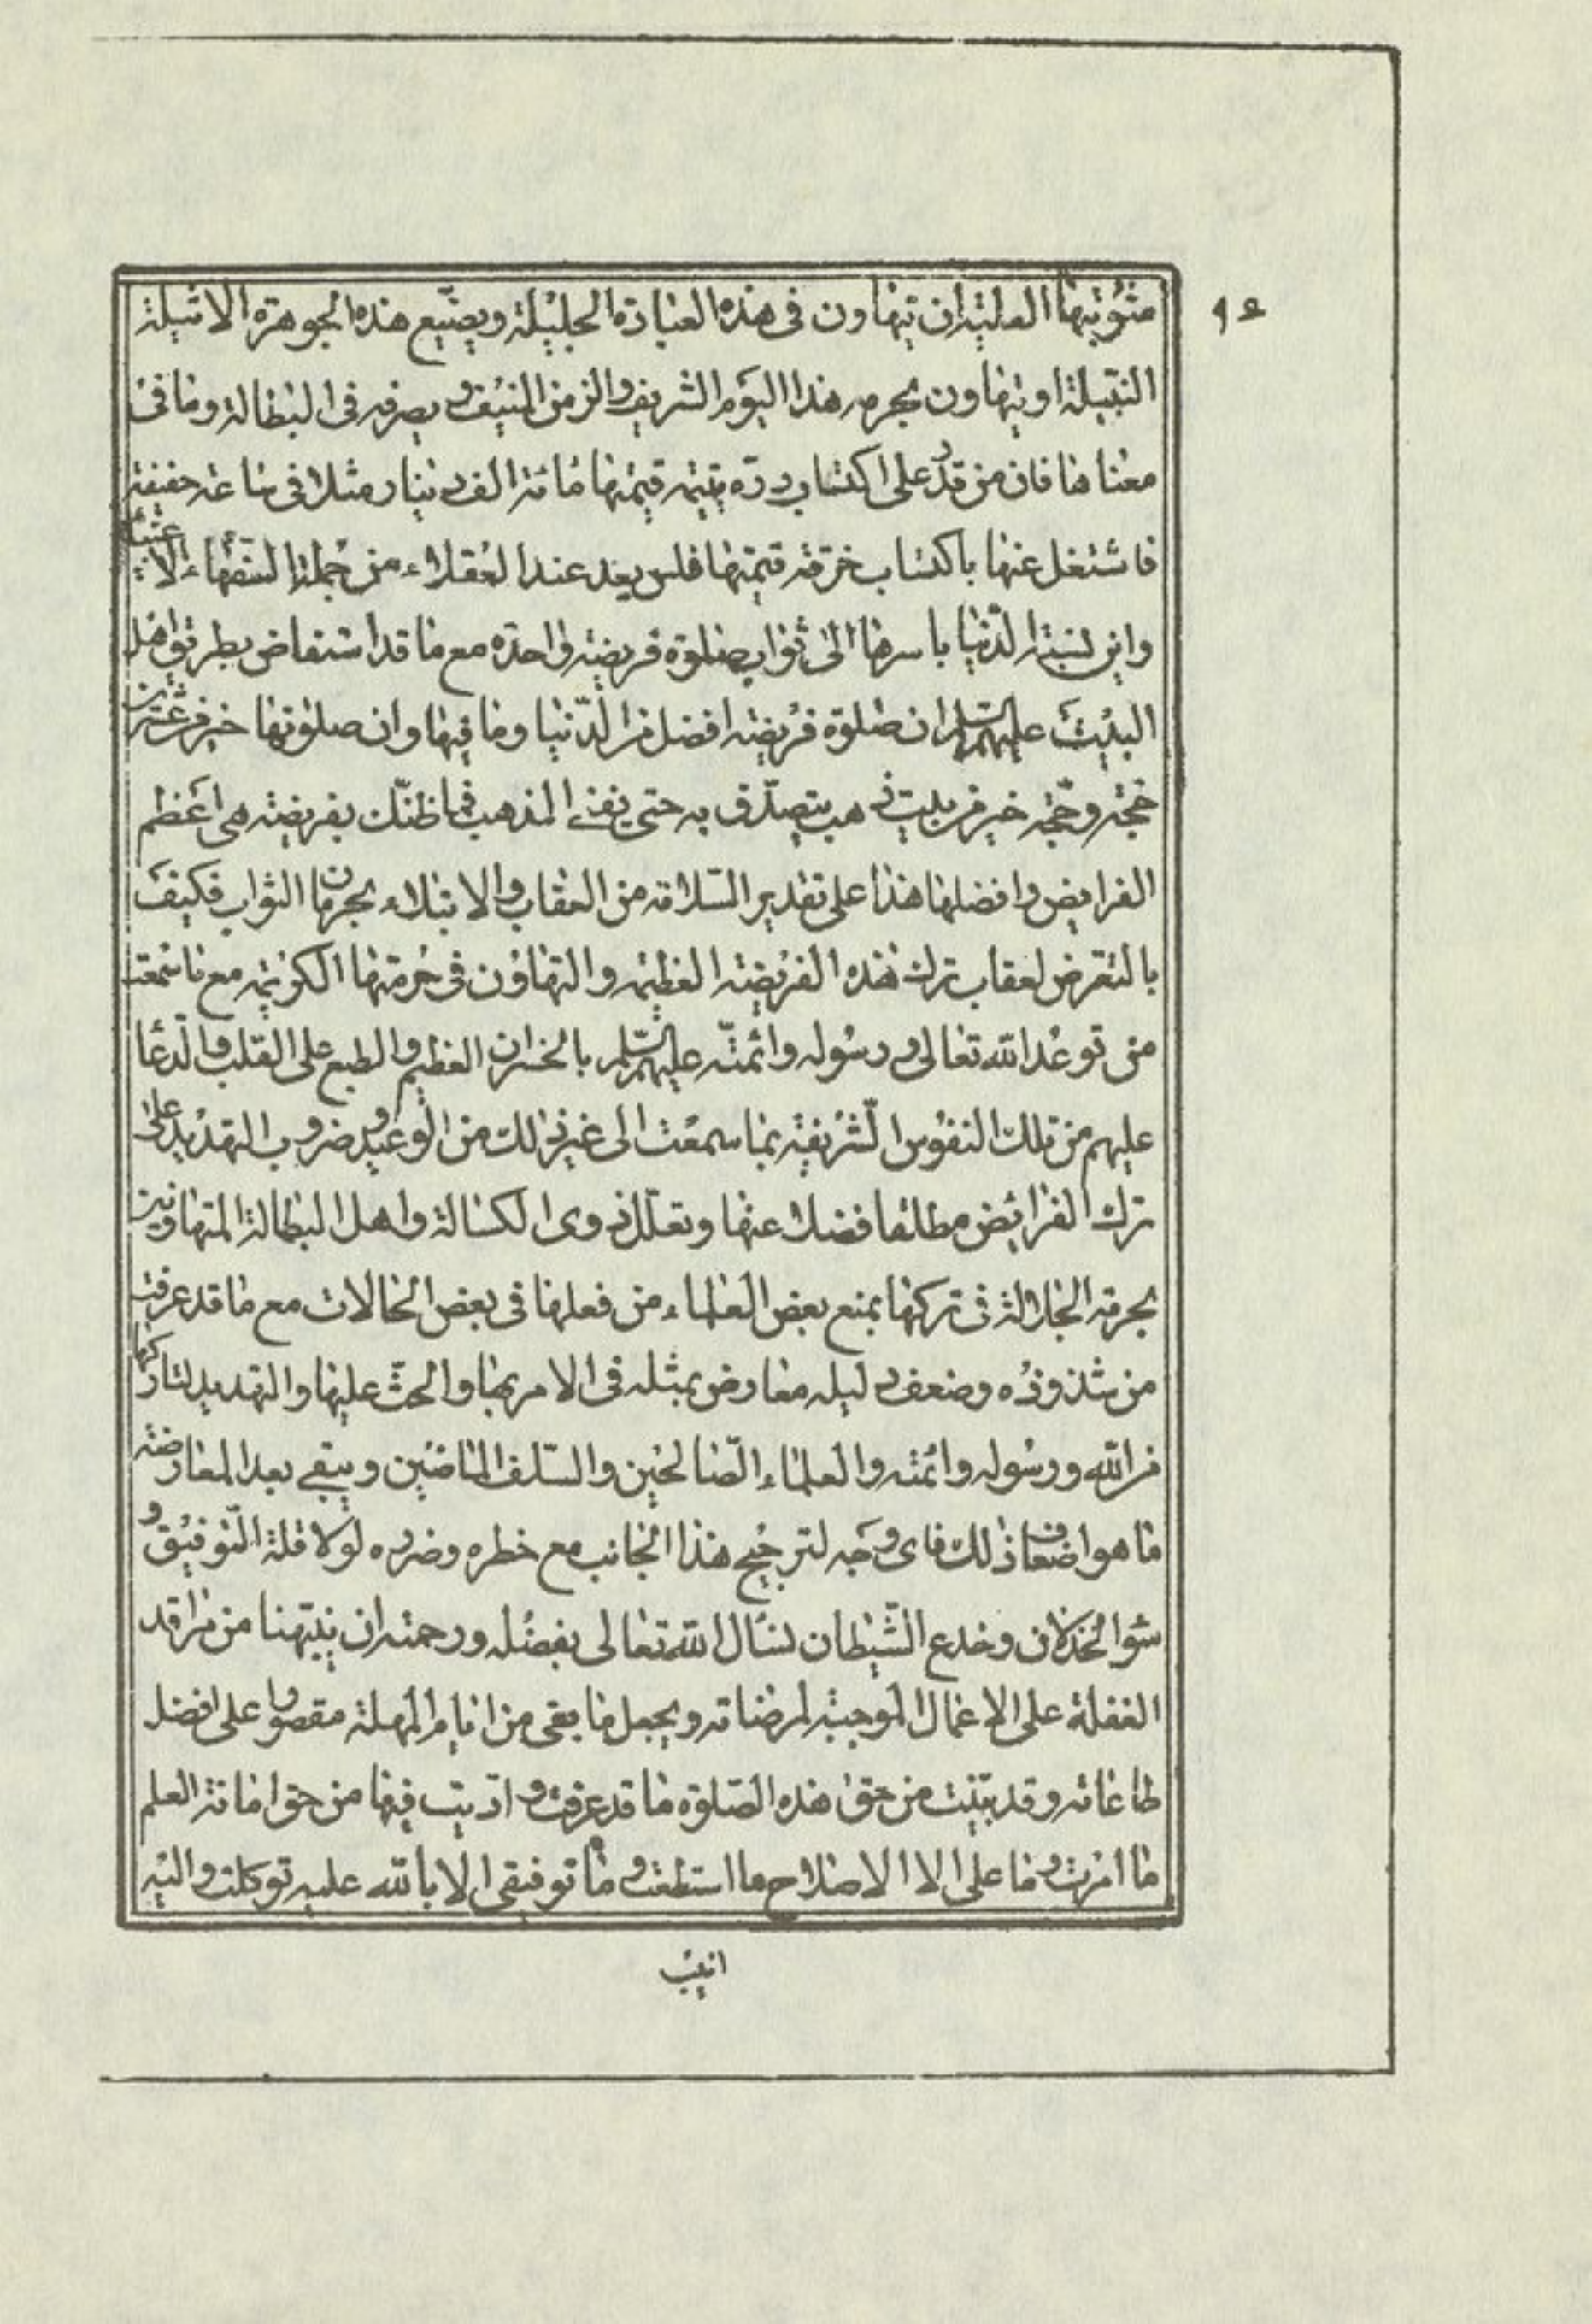 ٩٤
مثوبتها العلية ان يتهاون فى هذه العبادة الجليلة ويضيع هذه الجوهرة الاثيلة
النبيلة او يتهاون بحرمه هذا اليوم الشريف والزمن المنيف و يصرفه فى البطالة وما فى
معناها فان من قدر على اكتساب درّه يتيمه قيمتها مائة الف دينار مثلا فى ساعة خفيفة
فاشتغل عنها باكتساب خرقة قيمتها فلس يعد عند العقلاء من جملة السفهاء الاغبياء
واين نسبة الدّنيا باسرها الى ثواب صلوة فريضة واحدة مع ما قد استفاض بطريق اهل
البيت عليهم السّلم ان صلوة فريضة افضل من الدّنيا وما فيها وان صلوتها خير من عشرين
حجة وحجّة خير من بيت ذهب يتصدّق به حتى يفنى الذهب فما ظنّك بفريضة هى اعظم
الفرايض وافضلها هذا على تقدير السّلامة من العقاب والابتلاء بحرمان الثواب فكيف
بالتعرض لعقاب ترك هذه الفريضة العظيمه والتهاون فى حرمتها الكريمة مع ما سمعت
من توعد الله تعالى و رسوله وائمّته عليهم السّلم بالخسران العظيم والطبع على القلب والدّعا
عليهم من تلك النفوس الشّريفة بما سمعت الى غير ذلك من الوعيد وضروب التهديد على
ترك الفرائض مطلقا فضلا عنها وتعلّل ذوى الكسالة واهل البطالة المتهاونين
بحرمة الجلالة فى تركها بمنع بعض العلماء من فعلها فى بعض الحالات مع ما قد عرفت
من شذوذه وضعف دليله معارض بمثله فى الامر بها والحثّ عليها والتهديد لتاركها
من الله ورسوله وائمته والعلماء الصّالحين والسّلف الماضين ويبقى بعد المعارضة
ما هو اضعاف ذلك فاى وجه لترجيح هذا الجانب مع خطره وضرره لولا قلة التّوفيق و
سوا لخذلان وخدع الشّيطان نسأل الله تعالى بفضله ورحمته ان ينبّهنا من مراقد
الغفلة على الاعمال الموجبة لمرضاته ويجعل ما بقى من ايام المهلة مقصورا على افضل
طاعاته وقد بيّنت من حق هذه الصّلوة ما قد عرفت و ادّيت فيها من حق امانة العلم
ما امرت وما على الا الاصلاح ما استطعت و ما توفيقى الا بالله عليه توكلت واليه
انيب